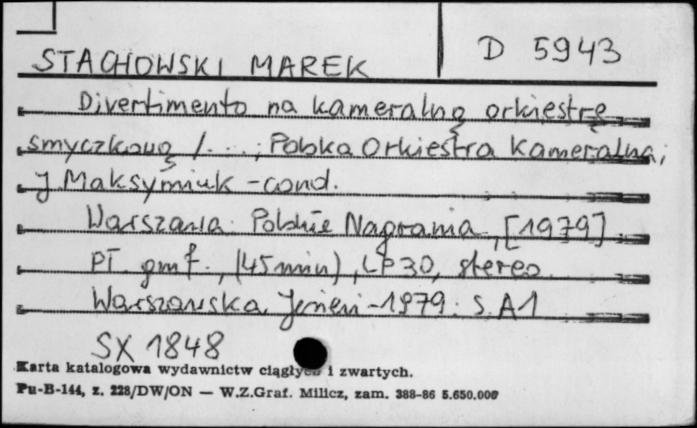 STACHOWSKI MAREK D 5943
Divertimento na kameralną orkiestrę
smyczkową /. ... ; Polska Orkiestra Kameralna;
J. Maksymiuk - cond.
Warszawa: Polskie Nagrania, [1979]
Pł. gmf., (45 min), LP30, stereo
Warszawska Jesień - 1979: S. A1
SX 1848
Karta katalogowa wydawnictw ciągłych i zwartych.
Pu-B-144, z. 228/DW/ON — W.Z.Graf. Milicz, zam. 388-86 5.650.000